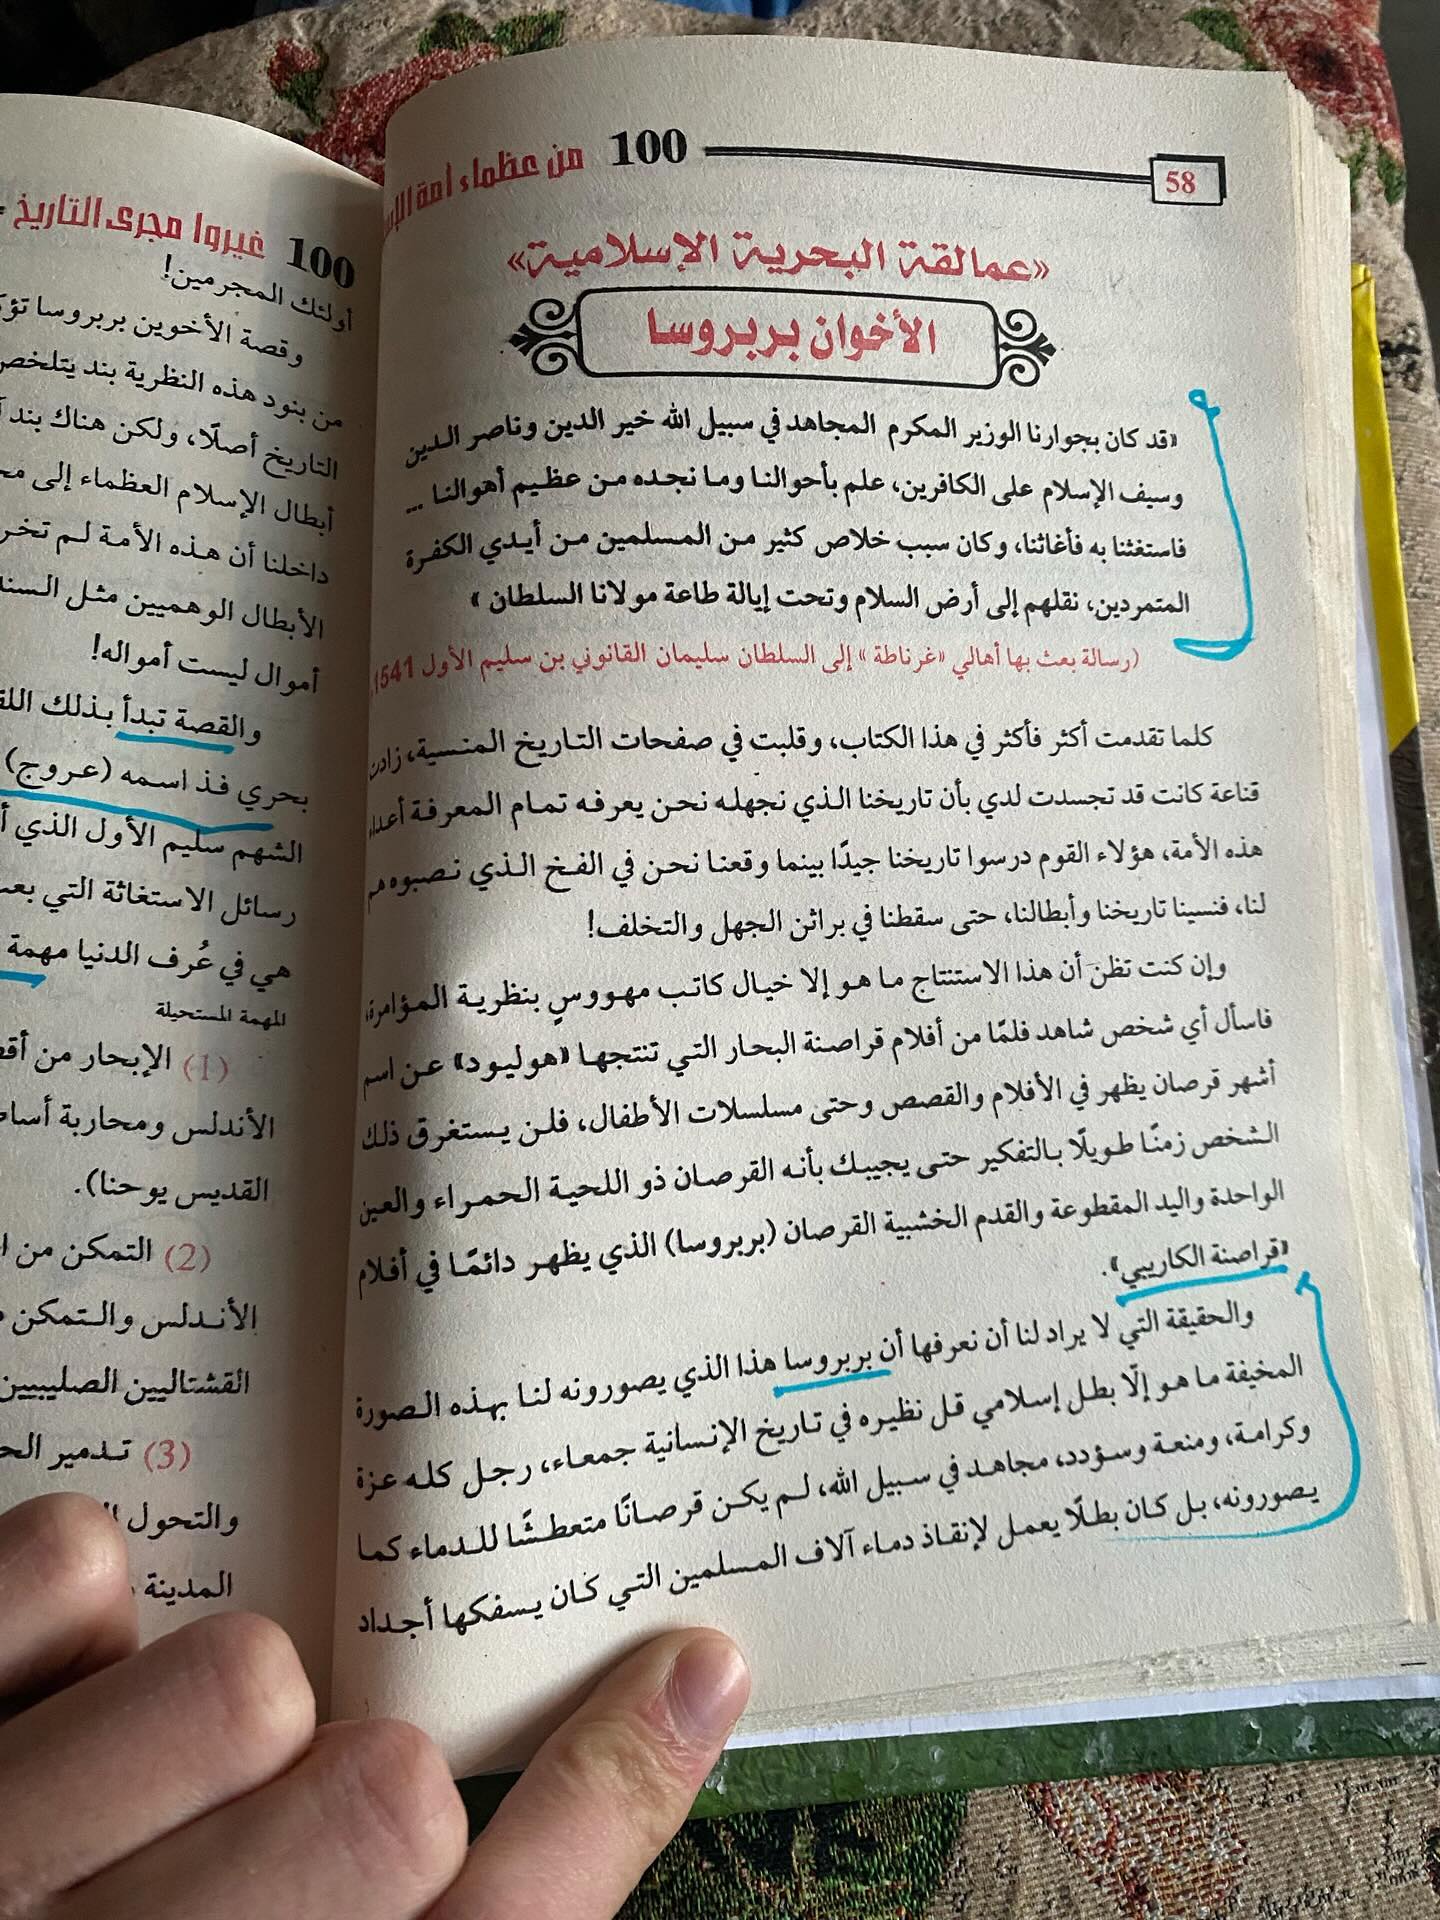 100 من عظماء أمة
58
«عمالقة البحرية الإسلامية»
الأخوان بربروسا
«قد كان بجوارنا الوزير المكرم المجاهد في سبيل الله خير الدين وناصر الدين
وسيف الإسلام على الكافرين، علم بأحوالنا وما نجده من عظيم أهوالنا ...
فاستغثنا به فأغاثنا، وكان سبب خلاص كثير من المسلمين من أيدي الكفرة
المتمردين، نقلهم إلى أرض السلام وتحت إيالة طاعة مولانا السلطان »
(رسالة بعث بها أهالي «غرناطة» إلى السلطان سليمان القانوني بن سليم الأول 1541
كلما تقدمت أكثر فأكثر في هذا الكتاب، وقلبت في صفحات التاريخ المنسية، زادت
قناعة كانت قد تجسدت لدي بأن تاريخنا الذي نجهله نحن يعرفه تمام المعرفة أعداء
هذه الأمة، هؤلاء القوم درسوا تاريخنا جيدًا بينما وقعنا نحن في الفخ الذي نصبوه هم
لنا، فنسينا تاريخنا وأبطالنا، حتى سقطنا في براثن الجهل والتخلف!
وإن كنت تظن أن هذا الاستنتاج ما هو إلا خيال كاتب مهووسٍ بنظرية المؤامرة،
فاسأل أي شخص شاهد فلمًا من أفلام قراصنة البحار التي تنتجها «هوليود» عن اسم
أشهر قرصان يظهر في الأفلام والقصص وحتى مسلسلات الأطفال، فلن يستغرق ذلك
الشخص زمنًا طويلًا بالتفكير حتى يجيبك بأنه القرصان ذو اللحية الحمراء والعين
الواحدة واليد المقطوعة والقدم الخشبية القرصان (بربروسا) الذي يظهر دائمًا في أفلام
«قراصنة الكاريبي».
والحقيقة التي لا يراد لنا أن نعرفها أن بربروسا هذا الذي يصورونه لنا بهذه الصورة
المخيفة ما هو إلّا بطل إسلامي قل نظيره في تاريخ الإنسانية جمعاء، رجل كله عزة
وكرامة، ومنعة وسؤدد، مجاهد في سبيل الله، لم يكن قرصانًا متعطشًا للدماء كما
يصورونه، بل كان بطلًا يعمل لإنقاذ دماء آلاف المسلمين التي كان يسفكها أجداد
100 غيروا مجرى التاريخ
أولئك المجرمين!
وقصة الأخوين بربروسا
من بنود هذه النظرية بند يتلخص
التاريخ أصلًا، ولكن هناك بند
أبطال الإسلام العظماء إلى
داخلنا أن هذه الأمة لم
الأبطال الوهميين مثل
أموال ليست أمواله!
والقصة تبدأ بذلك
بحري فذ اسمه (عروج)
الشهم سليم الأول الذي
رسائل الاستغاثة التي
هي في عُرف الدنيا مهمة
المهمة المستحيلة
(1) الإبحار من
الأندلس ومحاربة
القديس يوحنا).
(2) التمكن من
الأندلس والتمكن
القشتاليين الصليبيين
(3) تدمير
والتحول
المدينة